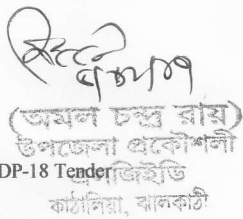 (অমল চন্দ্র রায়)
উপজেলা প্রকৌশলী
DP-18 Tender এলজিইডি
কাঠালিয়া, ঝালকাঠী